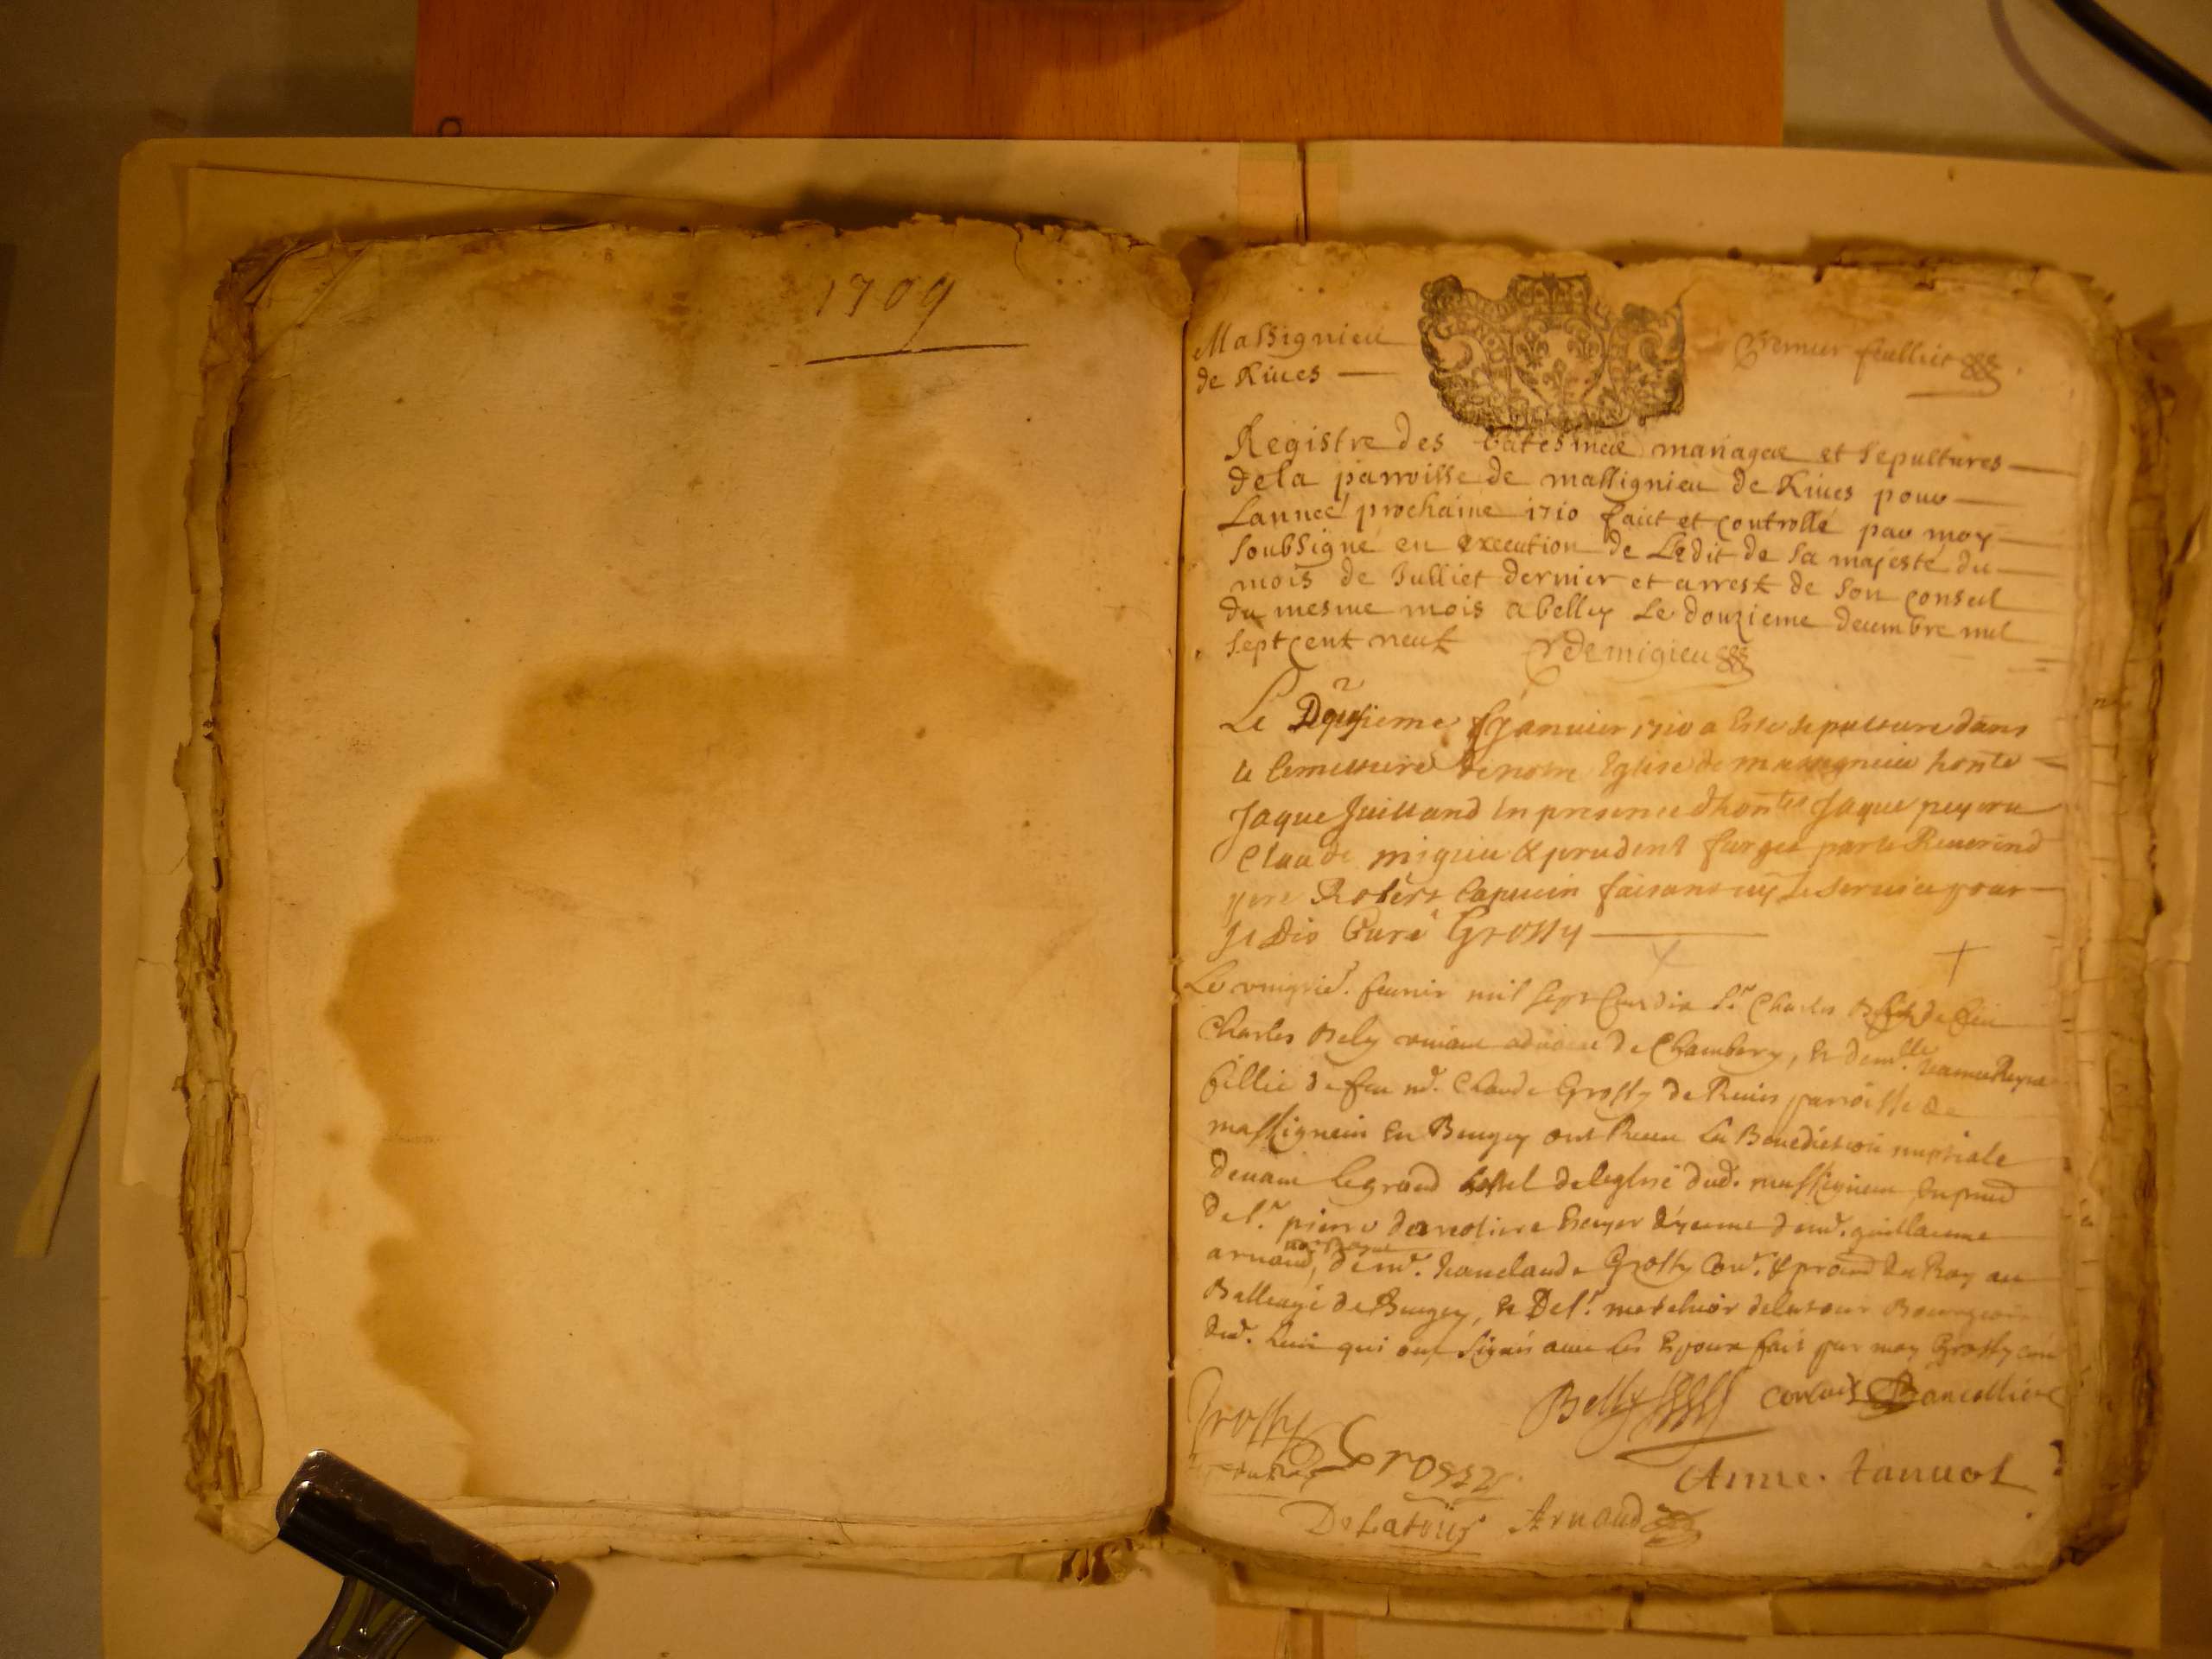 1709
Massignieu
de Riues
Premier feulliet
Registre des batesmes mariages et sepultures
de la parroisse de massignieu de Riues pour
Lannee prochaine 1710 faict et controllé par moy
soubsigné en execution de Ledit de sa majesté du
mois de Julliet dernier et arrest de son conseil
du mesme mois a belley Le douzieme decembre mil
sept cent neuf Demigieu
Le Douzieme Januier 1710 a Esté sepulturé dans
le Cemettiere de notre Eglise de massignieu honte
Jaque Juilland en presence d'hontes Jaque peyeru
Claude migieu & prudent furgea par le Reuerend
pere Robert Capucin faisant icy Le seruice pour
Grossy
Le feurier mil sept Cent dix Sr. Charles de feu
Charles Bely de Chambery, Et demlle.
fillie de feu Claude Grossy de Riues parroisse de
massignieu En Bugey ont Receu La Benediction nuptiale
deuant le grand hostel de leglise dud. massignieu
de Sr. pierre guillaume
arnaud, Grossy du Roy au
Balleage de Bugey, Et De Sr. melchior delatour Bourgeois
dud. qui ont signé auec les Epoux fait par moy Grossy curé
Grossy Belly
Grossy Anne
Delatour Arnaud